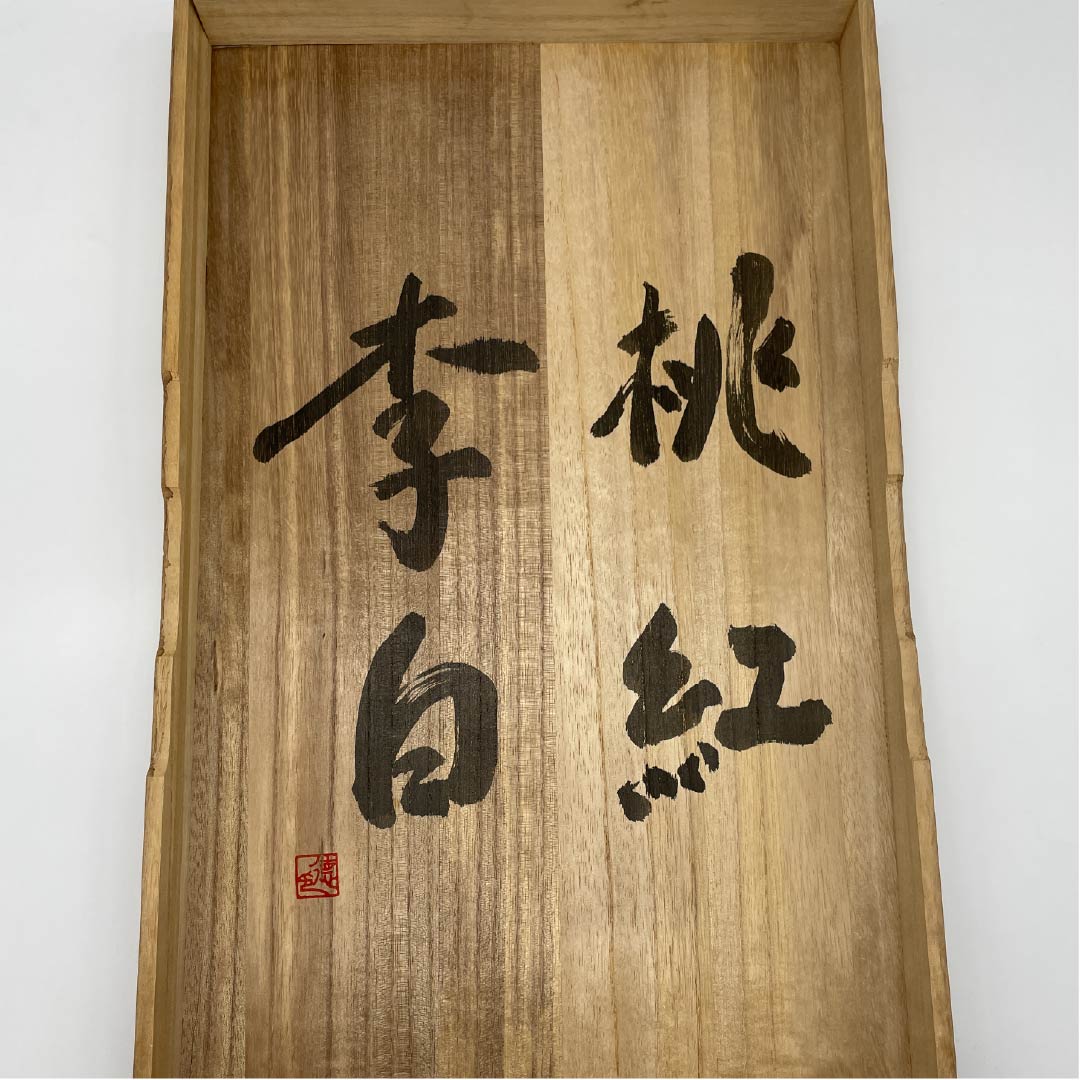 桃紅
李白